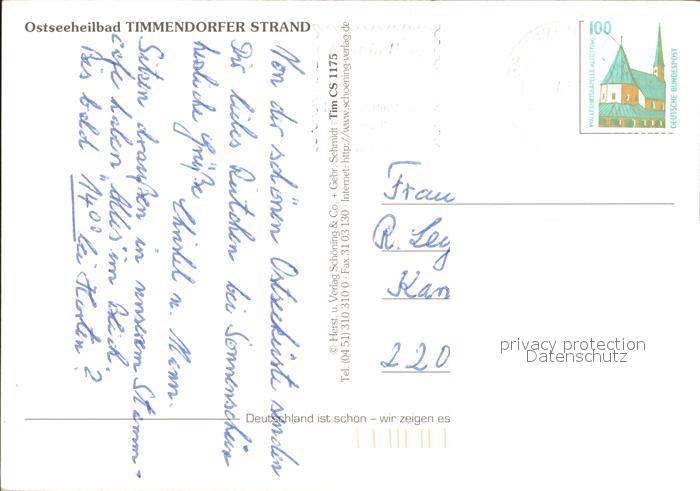 Ostseeheilbad TIMMENDORFER STRAND
Von der schönen Ostseeküste senden
Dir liebes Rutchen bei Sonnenschein
herzliche Grüße Christel u. Mann.
Sitzen draußen in unserem Stamm-
cafe haben "Alles im Blick".
Bis bald 14⁰⁰ bei
© Herst. u. Verlag Schöning & Co. + Gebr. Schmidt · Tim CS 1175
Tel. (04 51) 310 310 0 · Fax 31 03 130 · Internet: http://www.schoening-verlag.de
100
WALLFAHRTSKAPELLE ALTÖTTING
DEUTSCHE BUNDESPOST
Frau
R. Ley
Kan
220
privacy protection
Datenschutz
Deutschland ist schön – wir zeigen es